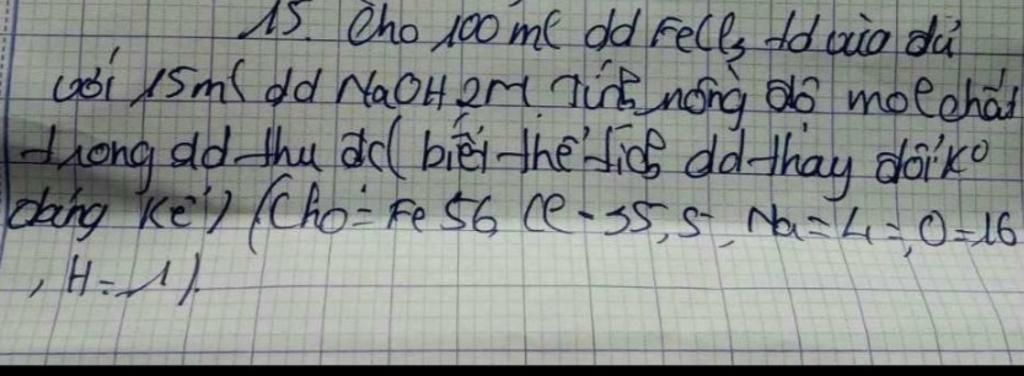 15. Cho 100 ml dd FeCl3 td vừa đủ
với 15ml dd NaOH 2M Tính nồng độ mol chất
trong dd thu đc (biết thể tích dd thay đổi ko
đáng kể) (Cho = Fe 56, Cl - 35,5, Na = 4 =, O = 16
, H = 1).